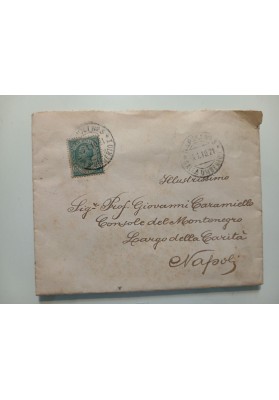 Illustrissimo
Sigr. Prof. Giovanni Caramiello
Console del Montenegro
Largo della Carità
Napoli